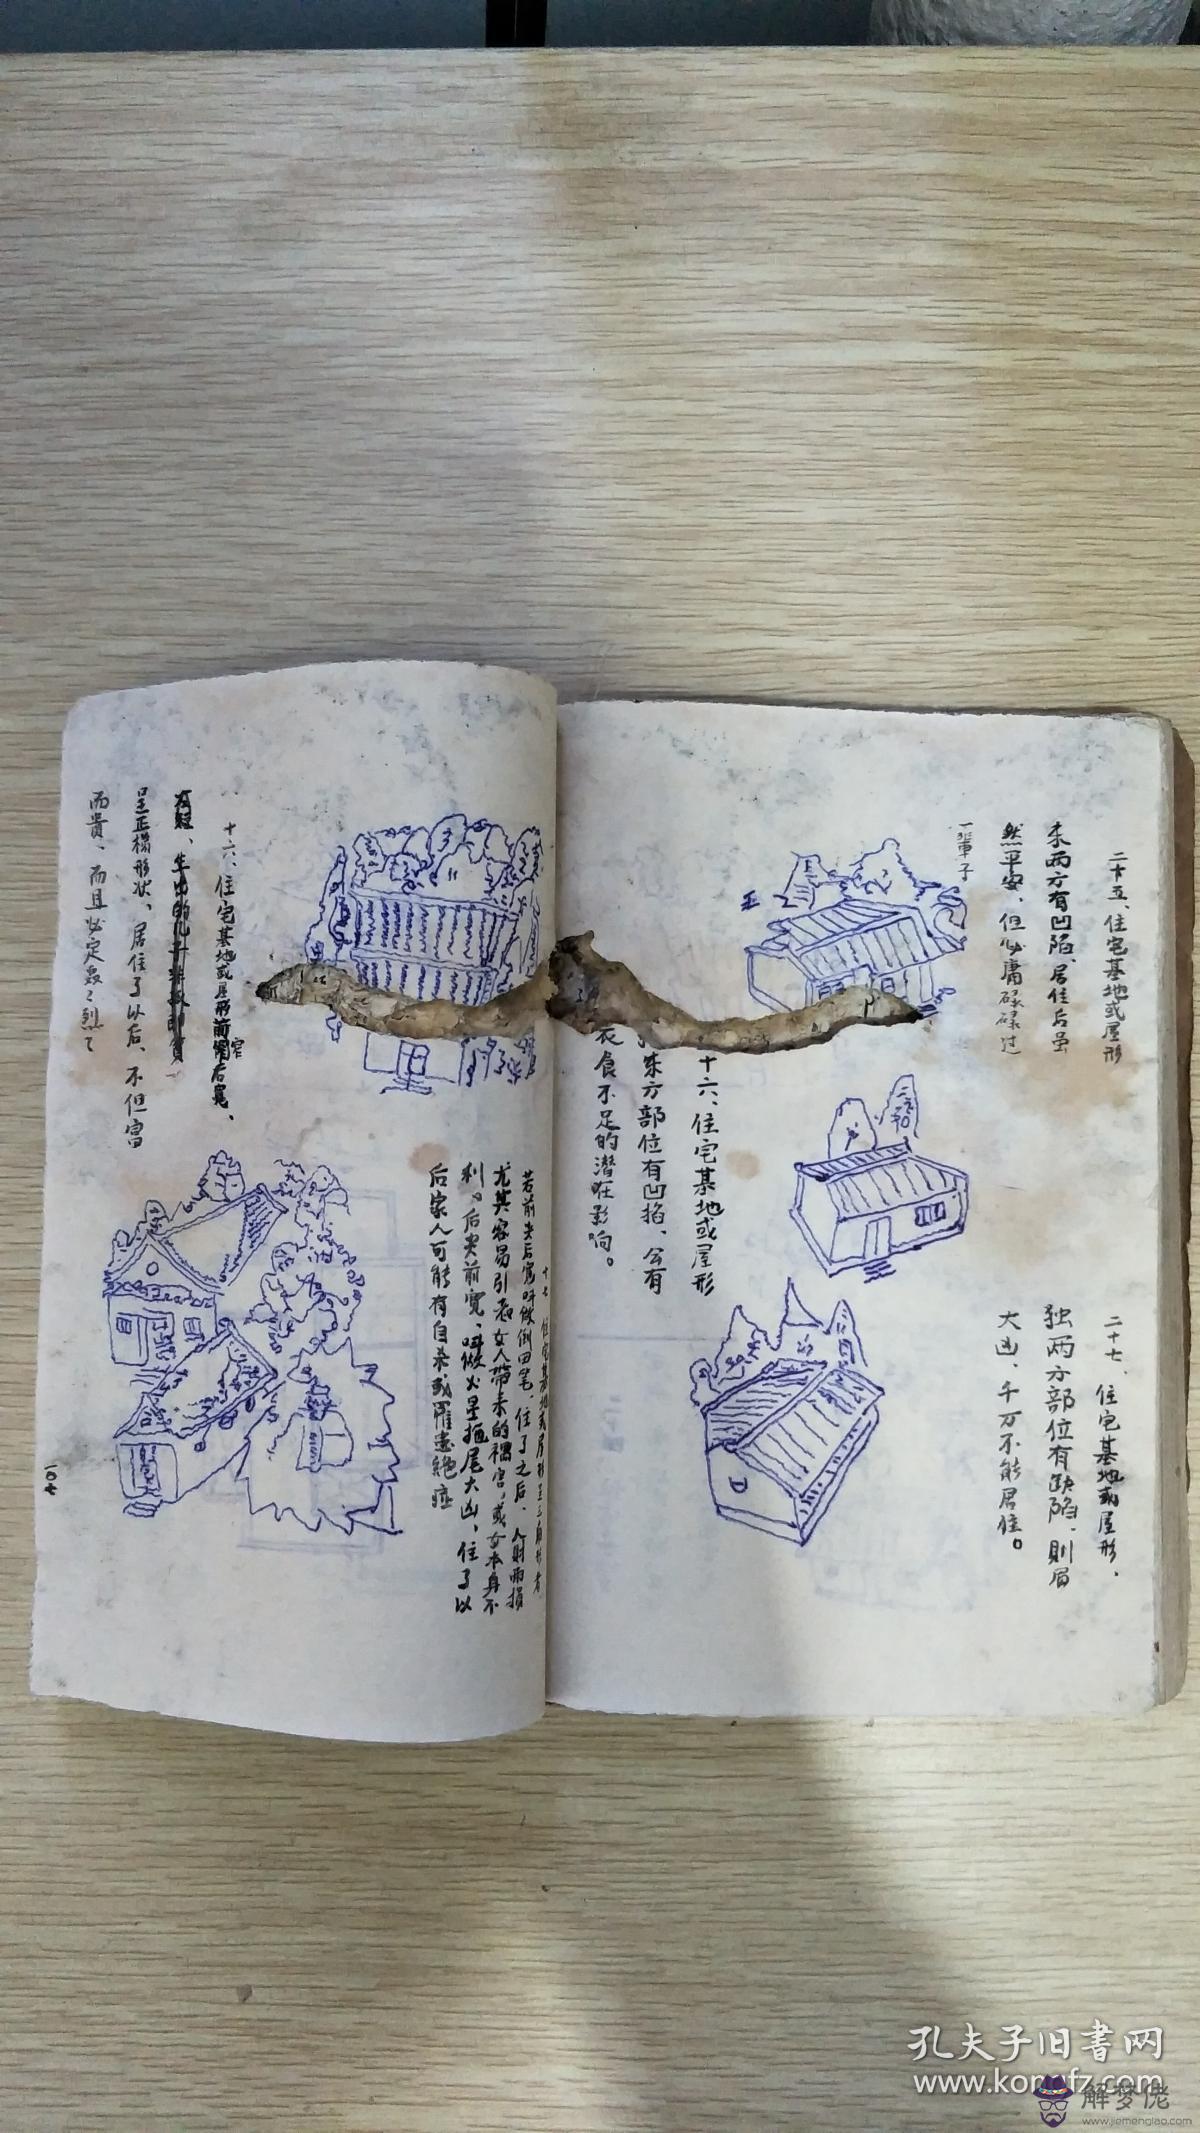 二十五、住宅基地或屋形
东西方有凹陷、居住后虽
然平安、但必庸碌碌过
一辈子
十六、住宅基地或屋形
东方部位有凹掐、公有
衣食不足的潜在影响。
二十七、住宅基地或屋形、
独两方部位有缺陷、則居
大凶、千万不能居住。
十六、住宅基地或屋形前窄后寬、
呈正梯形状、居住了以后、不但富
而贵、而且必定轰轰烈了
十七 住宅基地或屋形呈三角形者
若前尖后寬叫做倒田笔、住了之后、人财两损
尤其容易引起女人带来的禍害。或女本身不
利。后尖前寬、叫做火星拖尾大凶、住了以
后家人可能有自杀或罹患絶症
一〇七
孔夫子旧書网
www.kongfz.com
解梦佬
www.jiemenglao.com